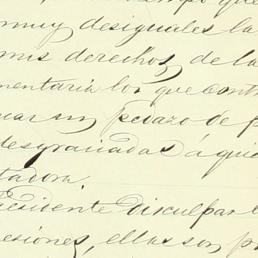 muy desiguales la
mis derechos, de la
mentaria los que contr
nar un pedazo de p
desgraciadas á quie
tadora.
disculpar l
esiones, ellas son p